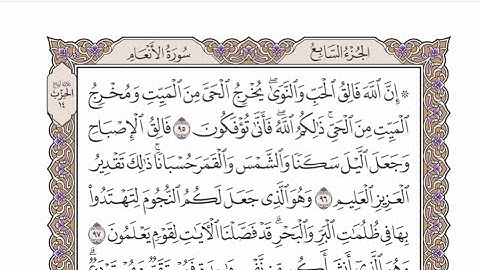 الجُزْءُ السَّابِعُ
سُورَةُ الأَنْعَامِ
الحِزْبُ
١٤
۞ إِنَّ ٱللَّهَ فَالِقُ ٱلْحَبِّ وَٱلنَّوَىٰۖ يُخْرِجُ ٱلْحَىَّ مِنَ ٱلْمَيِّتِ وَمُخْرِجُ
ٱلْمَيِّتِ مِنَ ٱلْحَىِّۚ ذَٰلِكُمُ ٱللَّهُۖ فَأَنَّىٰ تُؤْفَكُونَ ٩٥ فَالِقُ ٱلْإِصْبَاحِ
وَجَعَلَ ٱلَّيْلَ سَكَنًا وَٱلشَّمْسَ وَٱلْقَمَرَ حُسْبَانًاۚ ذَٰلِكَ تَقْدِيرُ
ٱلْعَزِيزِ ٱلْعَلِيمِ ٩٦ وَهُوَ ٱلَّذِى جَعَلَ لَكُمُ ٱلنُّجُومَ لِتَهْتَدُوا۟
بِهَا فِى ظُلُمَٰتِ ٱلْبَرِّ وَٱلْبَحْرِۗ قَدْ فَصَّلْنَا ٱلْءَايَٰتِ لِقَوْمٍ يَعْلَمُونَ ٩٧
وَهُوَ ٱلَّذِىٓ أَنشَأَكُم مِّن نَّفْسٍ وَٰحِدَةٍ فَمُسْتَقَرٌّ وَمُسْتَوْدَعٌۗ